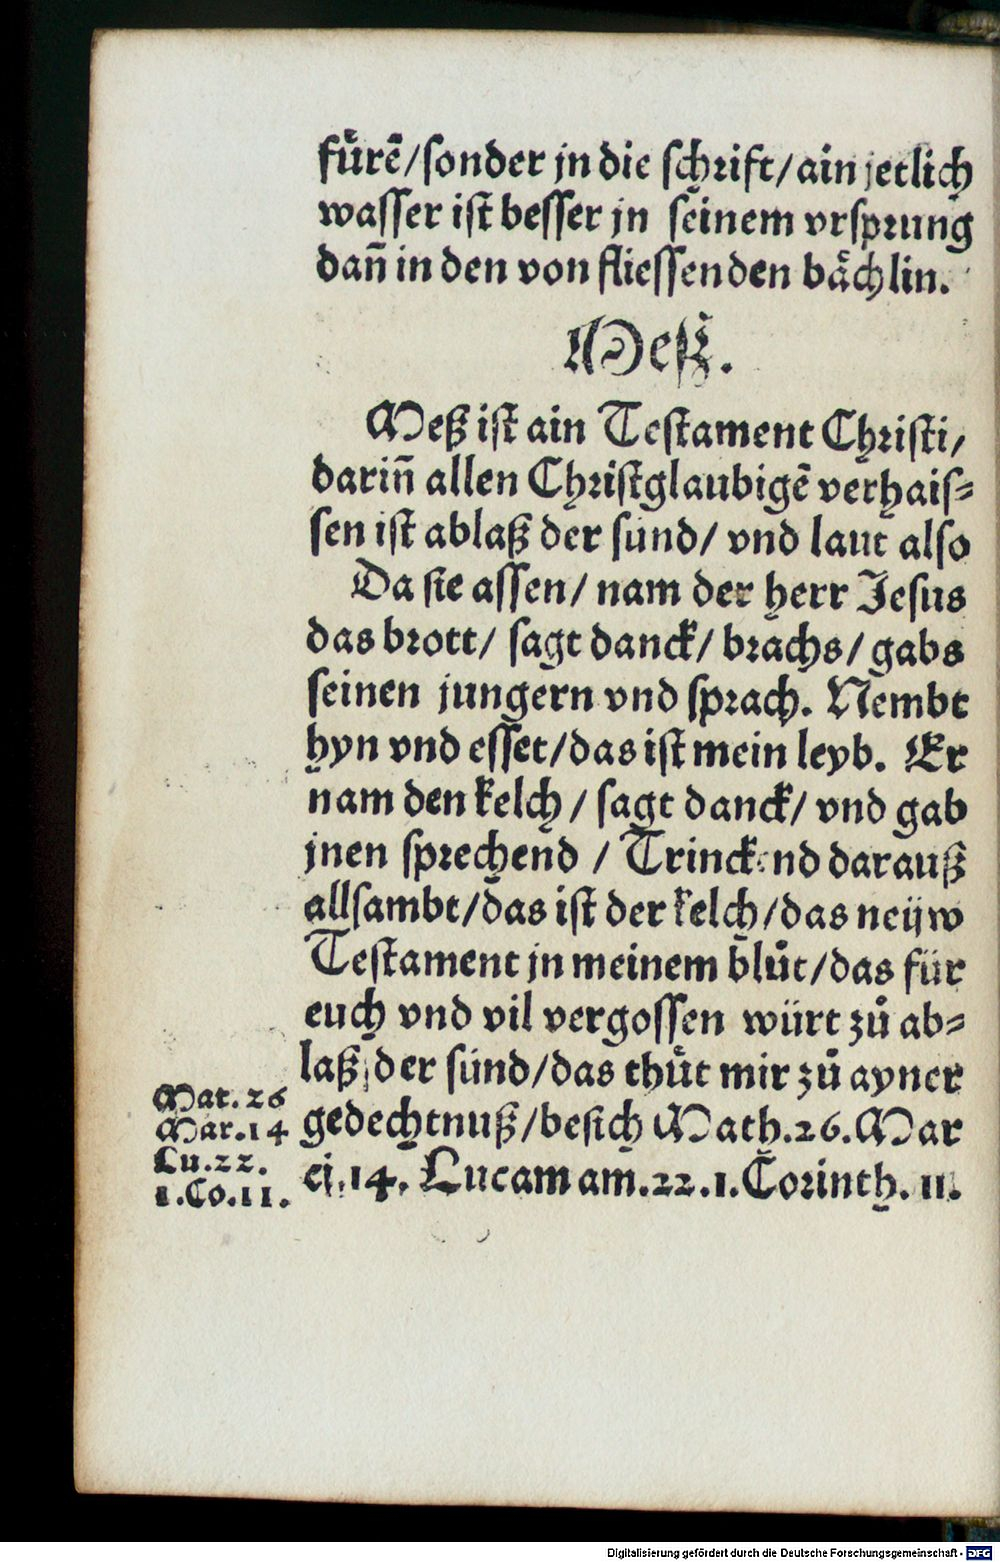 fuͤrē/sonder jn die schrift/ain jetlich
wasser ist besser jn seinem vrsprung
dañ in den von fliessenden baͤchlin.
Meß.
Meß ist ain Testament Christi/
dariñ allen Christglaubigē verhais⸗
sen ist ablaß der sund/ vnd laut also
Da sie assen/ nam der herr Jesus
das brott/ sagt danck/ brachs/ gabs
seinen jungern vnd sprach. Nembt
hyn vnd esset/das ist mein leyb. Er
nam den kelch/ sagt danck/ vnd gab
jnen sprechend / Trinckend darauß
allsambt/das ist der kelch/das neüw
Testament jn meinem bluͦt/das für
euch vnd vil vergossen würt zuͦ ab⸗
laß der sünd/das thuͤt mir zuͦ ayner
gedechtnuß/besich Math.26.Mar
ci.14. Lucam am.22.1.Corinth. 11.
Mat.26
Mar.14
Lu.22.
1.Co.11.
Digitalisierung gefördert durch die Deutsche Forschungsgemeinschaft - DFG